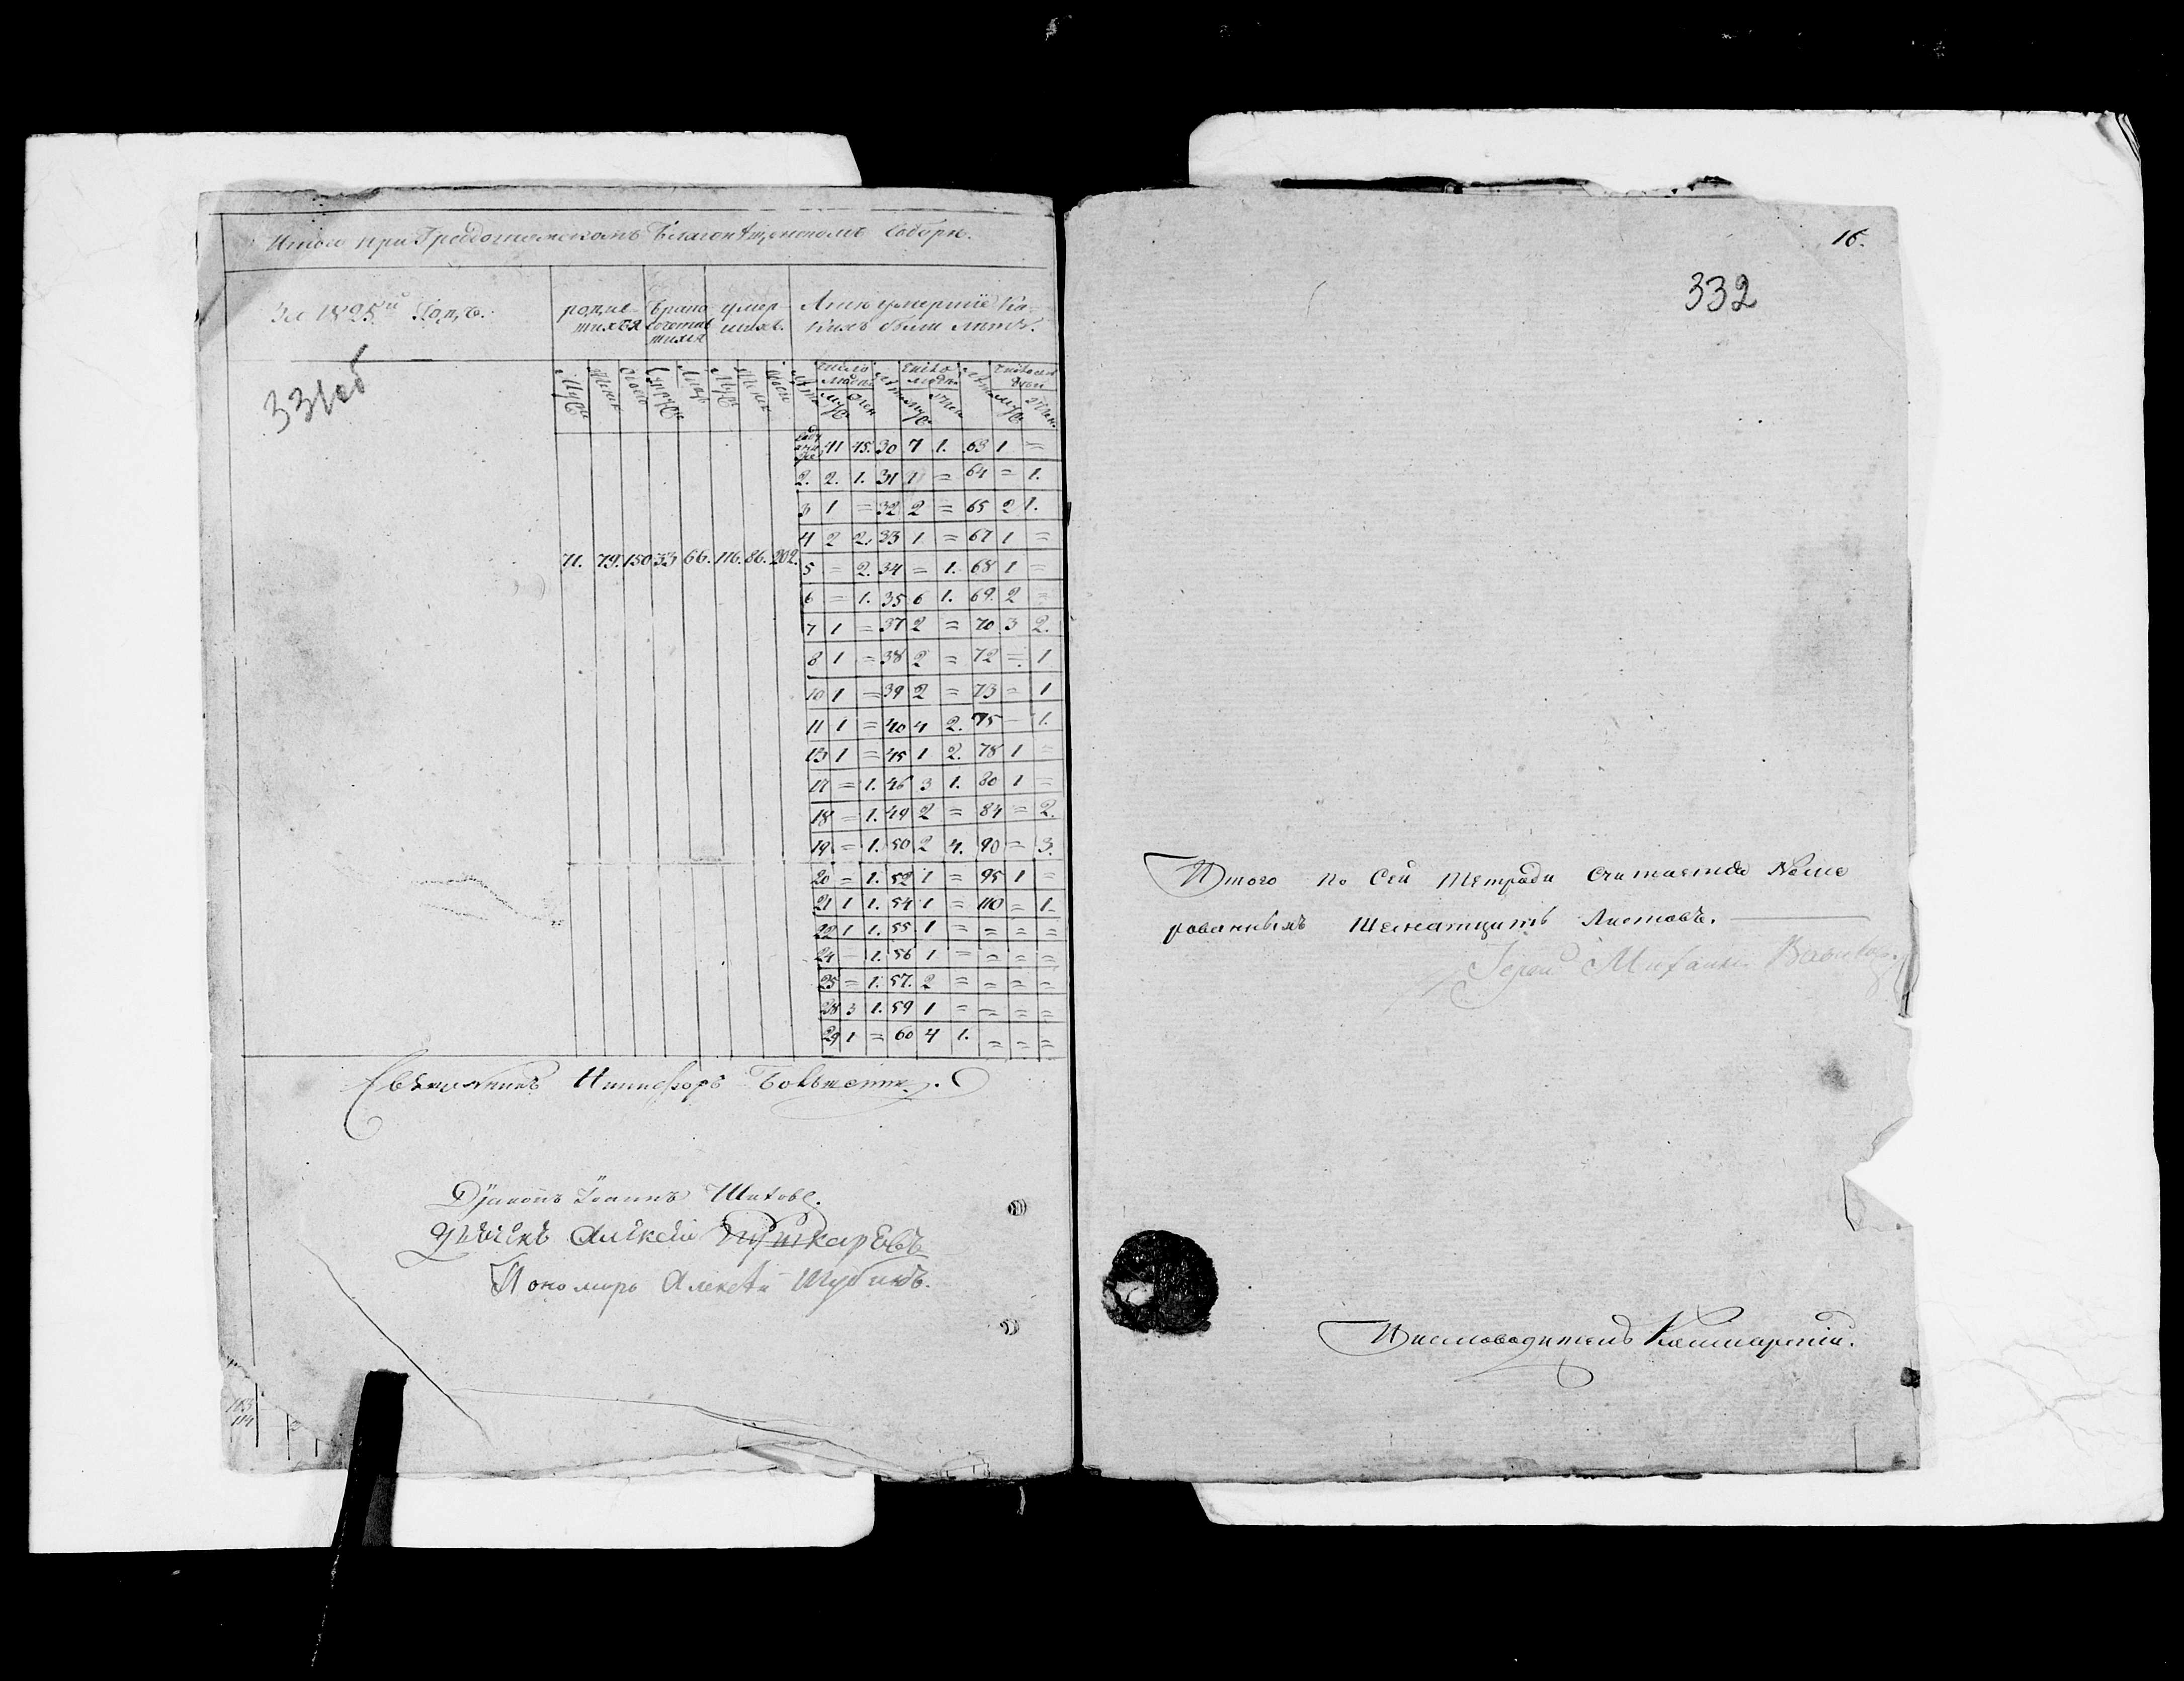 Итого при Градотомскомъ Благовѣщенскомъ Соборѣ.
За 1825й Годъ.
331об
родив-
шихся
брако
сочетав
шихся
умер-
шихъ
Лѣта умершіе Ка-
кихъ были лѣтъ.
Муж Жен Обоего Супруж Лицъ Муж Жен Обоего Лѣта число людей муж жен Лѣта число людей муж жен Лѣта число людей муж жен
71. 79. 150 33 66. 116. 86. 202.
41 45. 30 7 1. 63 1 =
2. 2. 1. 31 1 = 64 = 1.
3 1 = 32 2 = 65 2 1.
4 2 2. 33 1 = 67 1 =
5 = 2. 34 = 1. 68 1 =
6 = 1. 35 6 1. 69. 2 =
7 1 = 37 2 = 70 3 2.
8 1 = 38 2 = 72 = 1
10 1 = 39 2 = 73 = 1
11 1 = 40 4 2. 75 = 1.
13 1 = 45 1 2. 78 1 =
17 = 1. 46 3 1. 80 1 =
18 = 1. 49 2 = 84 = 2.
19 = 1. 50 2 4. 90 = 3.
20 = 1. 52 1 = 95 1 =
21 1 1. 54 1 = 110 = 1.
22 1 1. 55 1 = = = =
24 = 1. 56 1 = = = =
25 = 1. 57. 2 = = = =
28 3 1. 59 1 = = = =
29 1 = 60 4 1. = = =
Священникъ Никифоръ
Діаконъ Іоаннъ Шиховъ.
Дьячекъ Алексѣй Пушкаревъ
Пономарь Алексѣй Шубинъ.
103
114
16.
332
Итого по Сей Тетради Считается Номе
рованныхъ Шеснатцать Листовъ.
Іерей Михаилъ
Писмоводитель